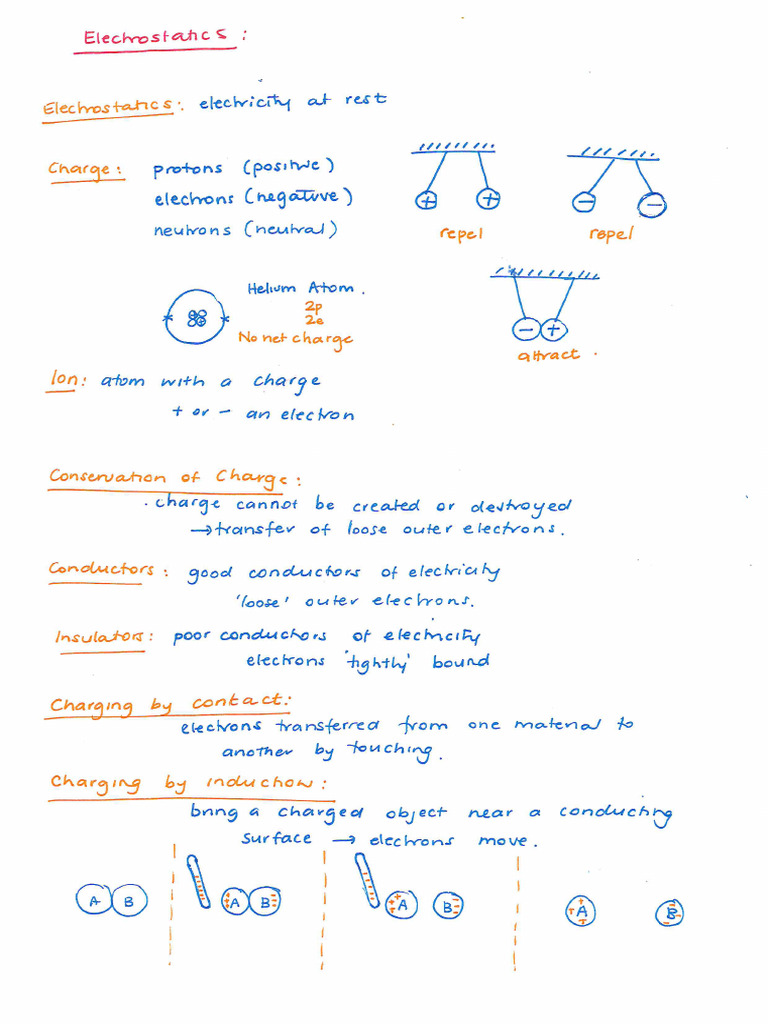 Electrostatics :
Electrostatics: electricity at rest
Charge: protons (positive)
electrons (negative)
neutrons (neutral)
+ +
repel
- -
repel
Helium Atom.
2p
2e
No net charge
- +
attract .
Ion: atom with a charge
+ or - an electron
Conservation of Charge:
. charge cannot be created or destroyed
→ transfer of loose outer electrons.
Conductors: good conductors of electricity
'loose' outer electrons.
Insulators: poor conductors of electricity
electrons 'tightly' bound
Charging by contact:
electrons transferred from one material to
another by touching.
Charging by induction:
bring a charged object near a conducting
surface → electrons move.
A B
A B
A B
A B